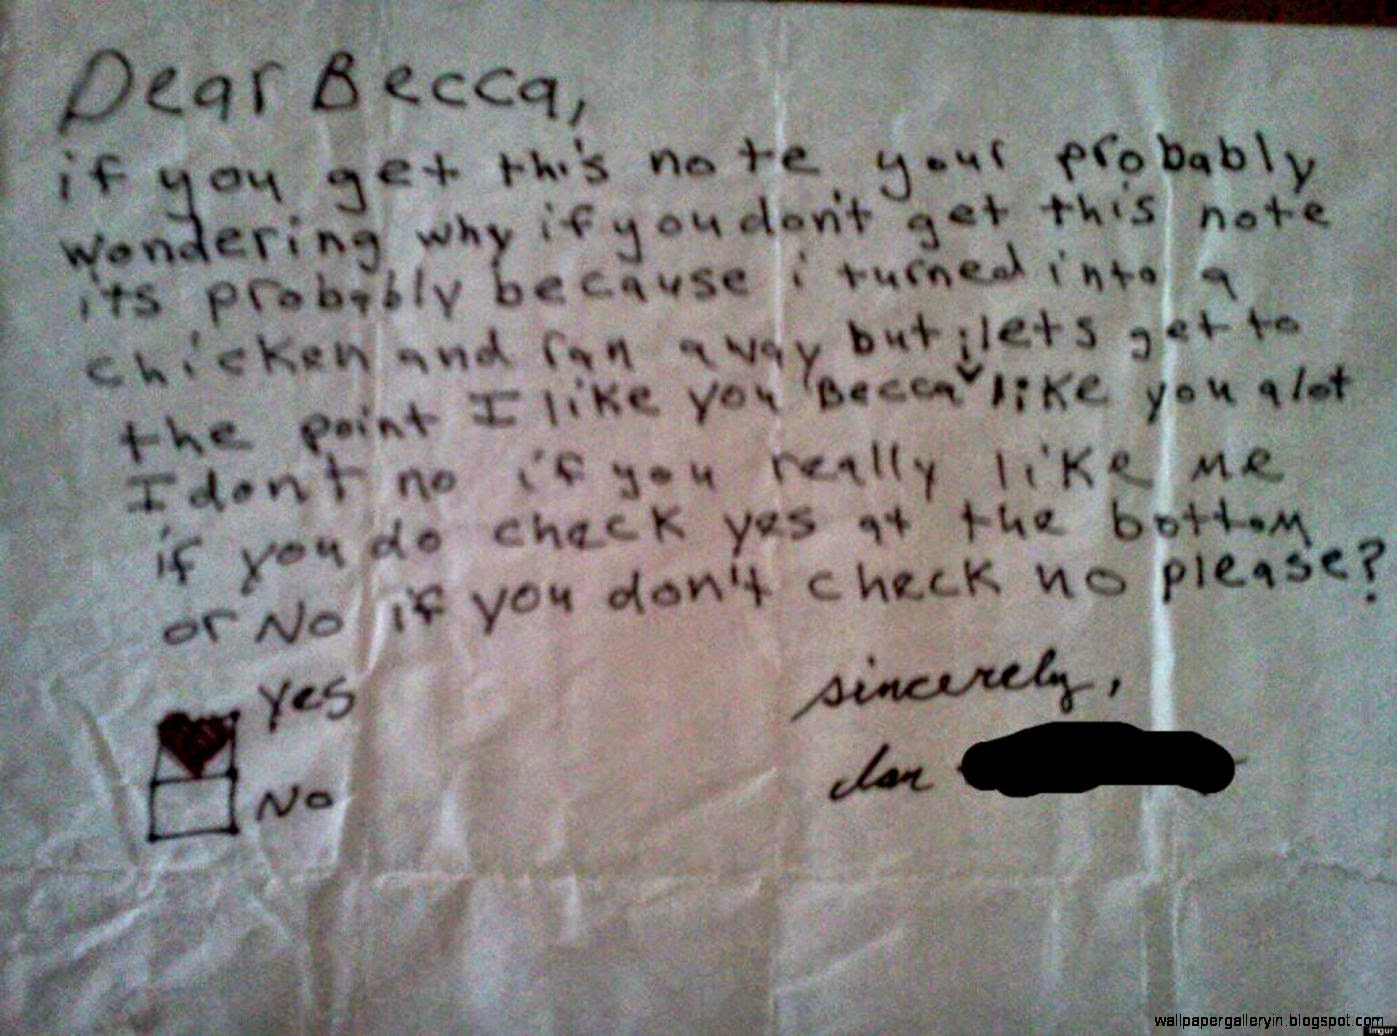 Dear Becca,
if you get this note your probably
wondering why if you don't get this note
its probably because i turned into a
chicken and ran away but i lets get to
the point I like you Becca like you alot
I dont no if you really like me
if you do check yes at the bottom
or No if you don't check no please?
Yes
No
sincerely,
Ian
wallpapergalleryin.blogspot.com
Imgur